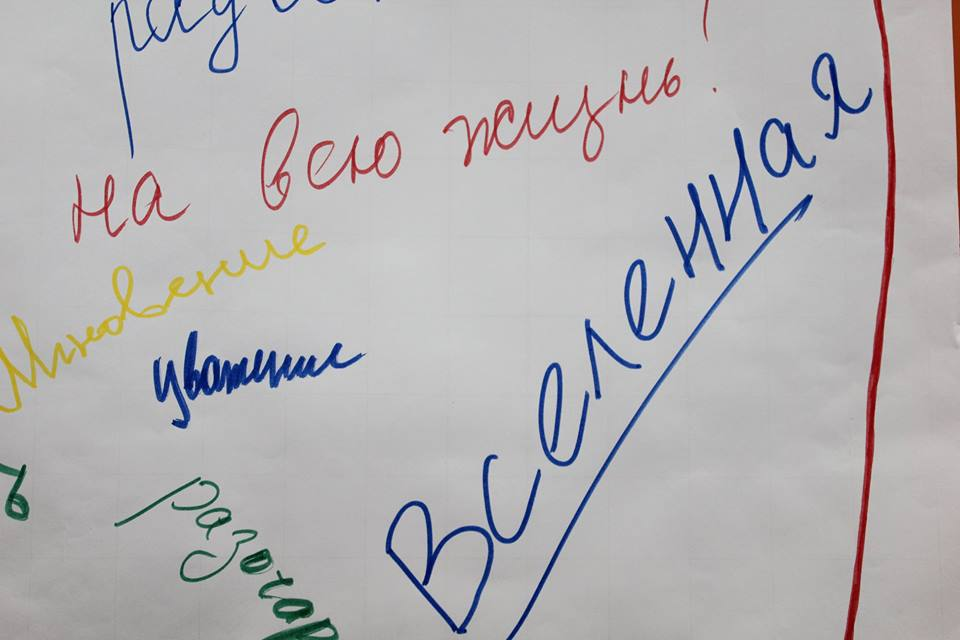 на всю жизнь!
Мгновение
уважение
Вселенная
разочар